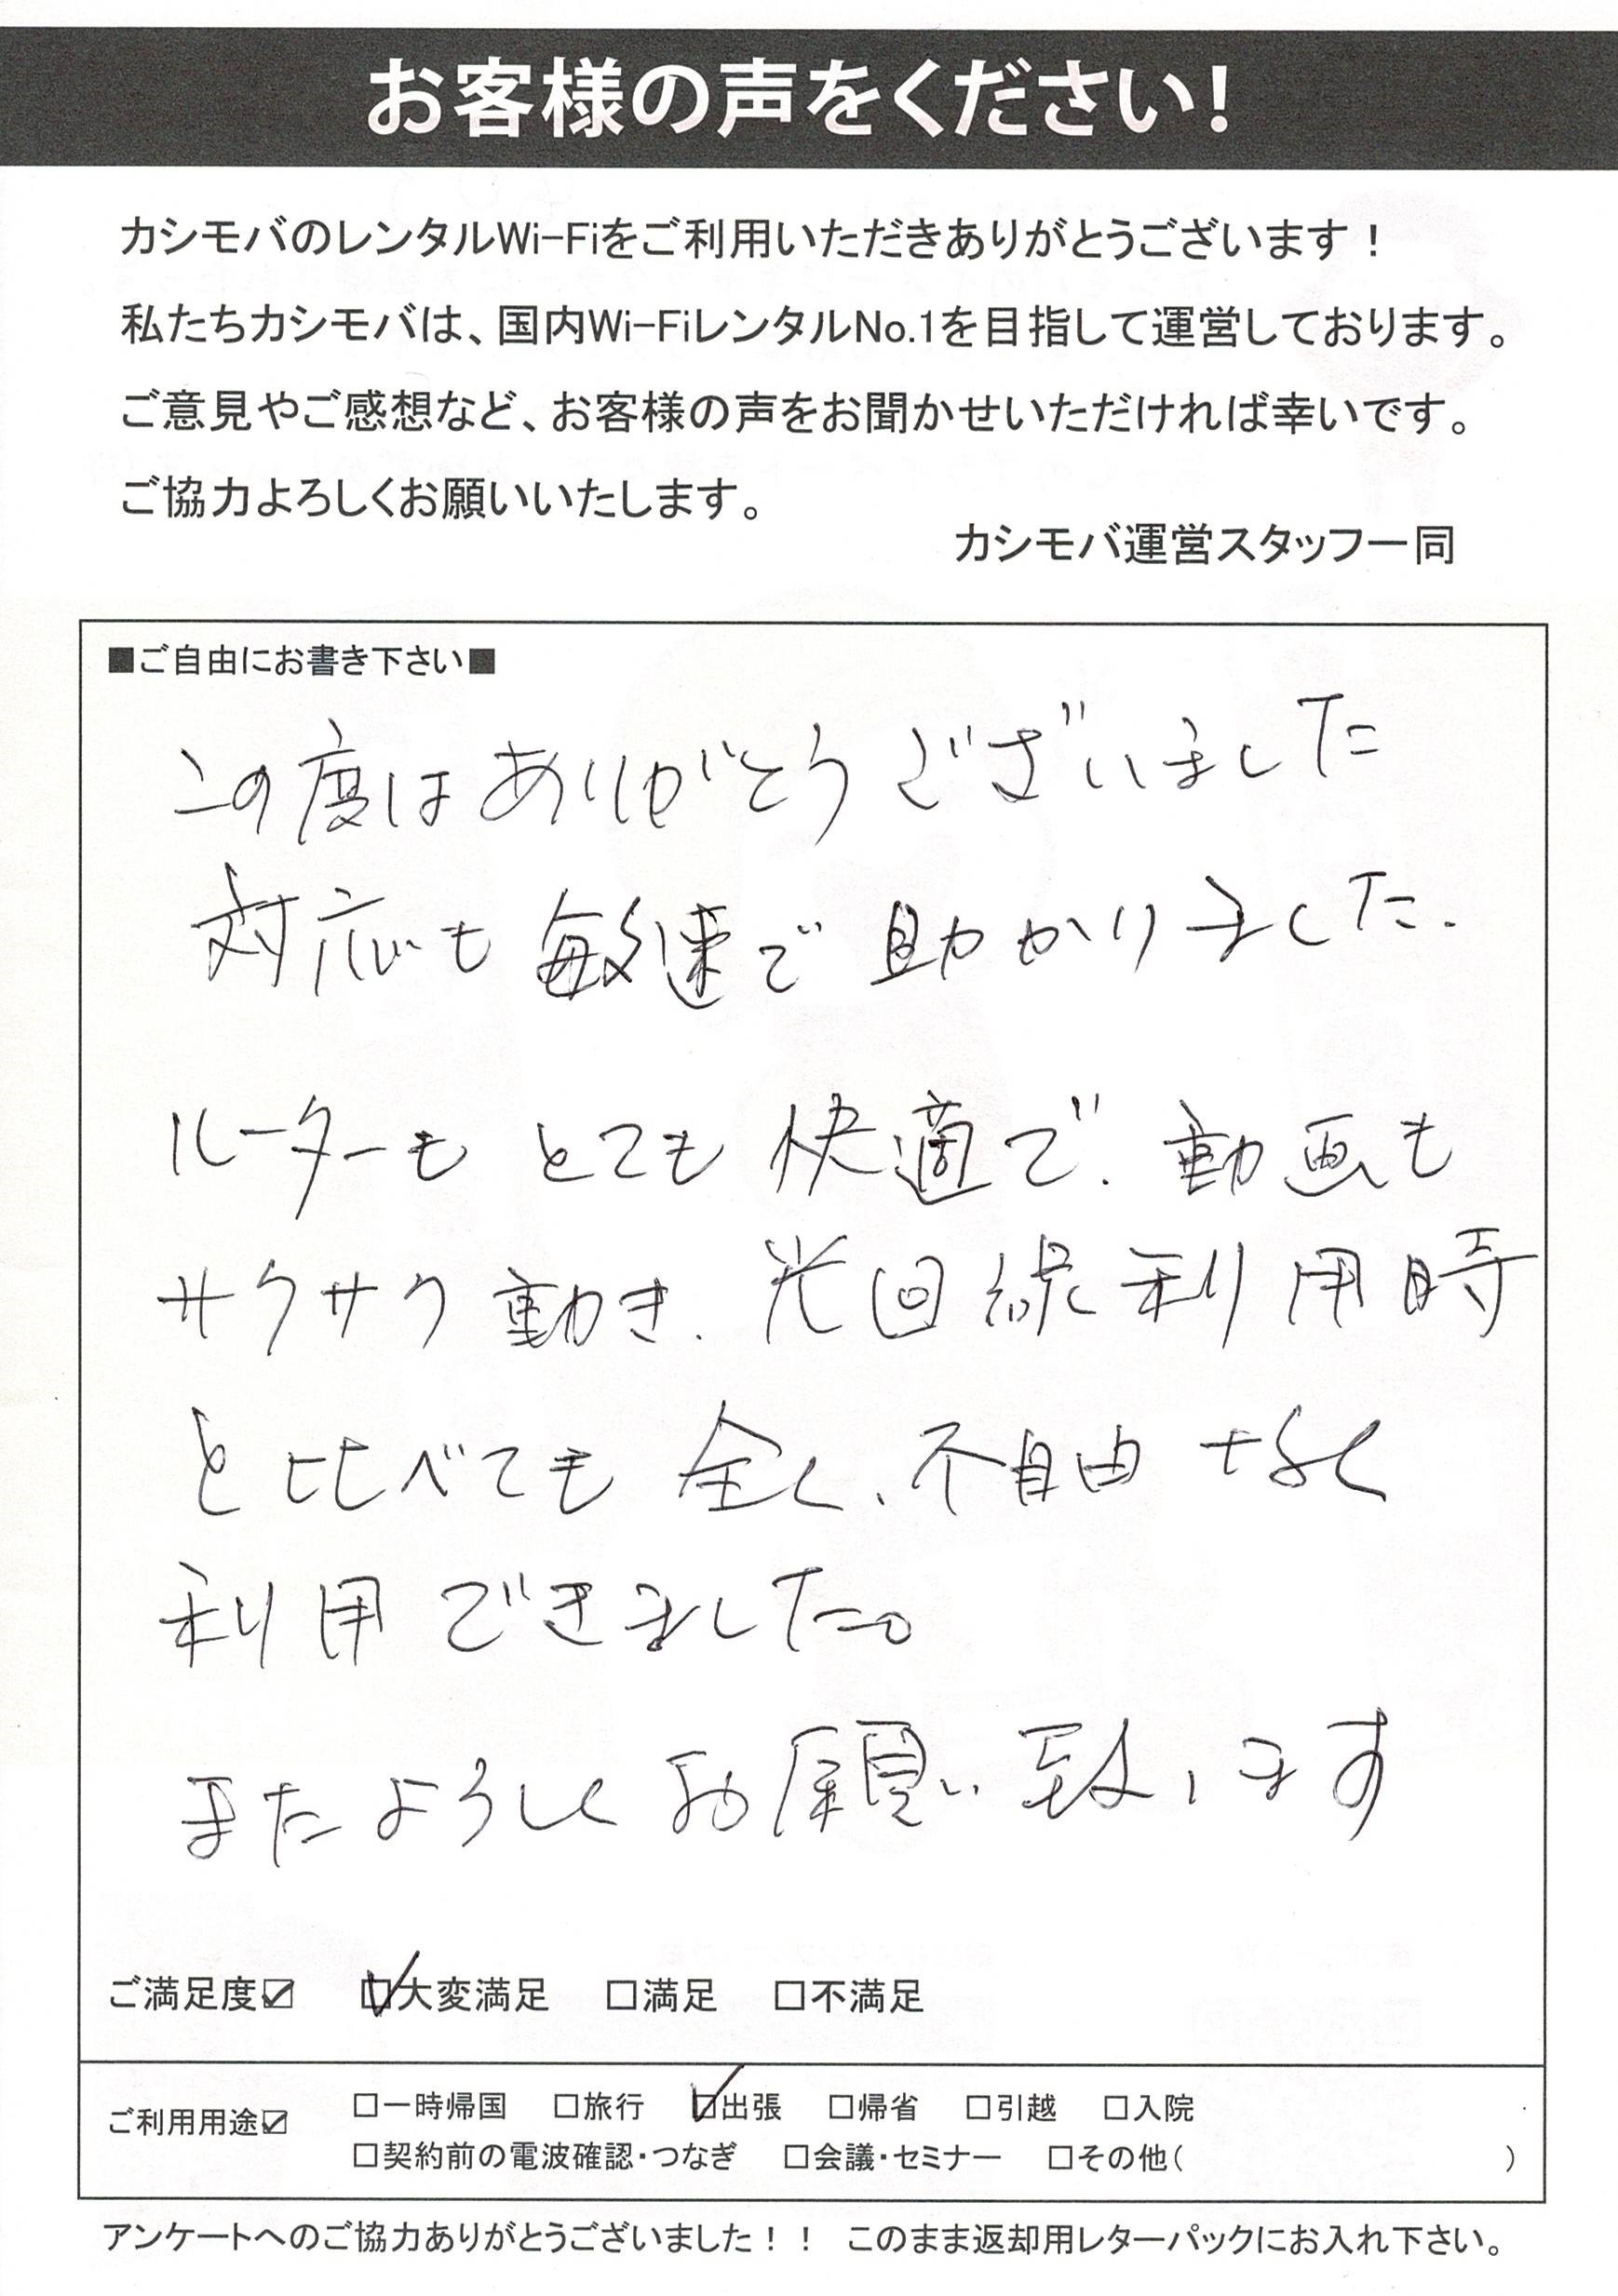 お客様の声をください！
カシモバのレンタルWi-Fiをご利用いただきありがとうございます！
私たちカシモバは、国内Wi-FiレンタルNo.1を目指して運営しております。
ご意見やご感想など、お客様の声をお聞かせいただければ幸いです。
ご協力よろしくお願いいたします。
カシモバ運営スタッフ一同
■ご自由にお書き下さい■
この度はありがとうございました
対応も敏速で助かりました.
ルーターもとても快適で、動画も
サクサク動き、光回線利用時
と比べても全く、不自由なく
利用できました。
またよろしくお願い致します
ご満足度☑ ☑大変満足 □満足 □不満足
ご利用用途☑ □一時帰国 □旅行 ☑出張 □帰省 □引越 □入院
□契約前の電波確認・つなぎ □会議・セミナー □その他( )
アンケートへのご協力ありがとうございました！！ このまま返却用レターパックにお入れ下さい。